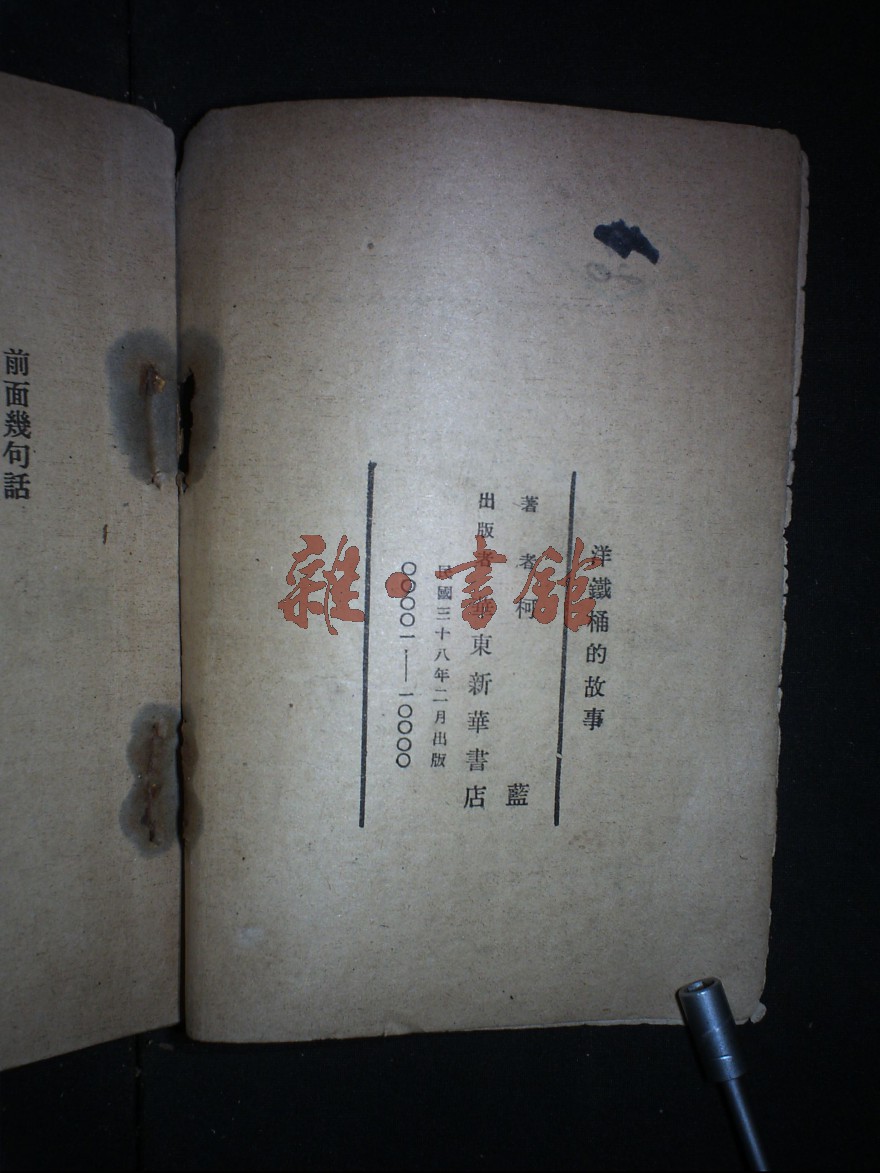 洋鐵桶的故事
著者柯藍
出版者華東新華書店
民國三十八年二月出版
〇〇〇〇一——一〇〇〇〇
前面幾句話
雜·書館